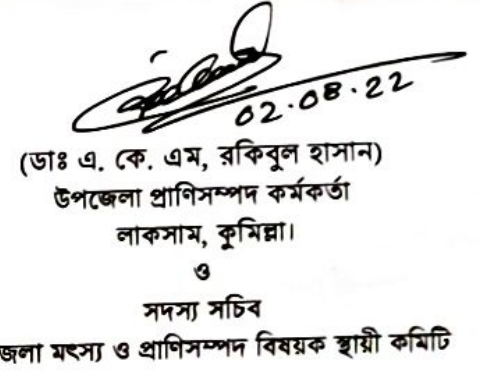 02.08.22
(ডাঃ এ. কে. এম, রকিবুল হাসান)
উপজেলা প্রাণিসম্পদ কর্মকর্তা
লাকসাম, কুমিল্লা।
ও
সদস্য সচিব
জেলা মৎস্য ও প্রাণিসম্পদ বিষয়ক স্থায়ী কমিটি